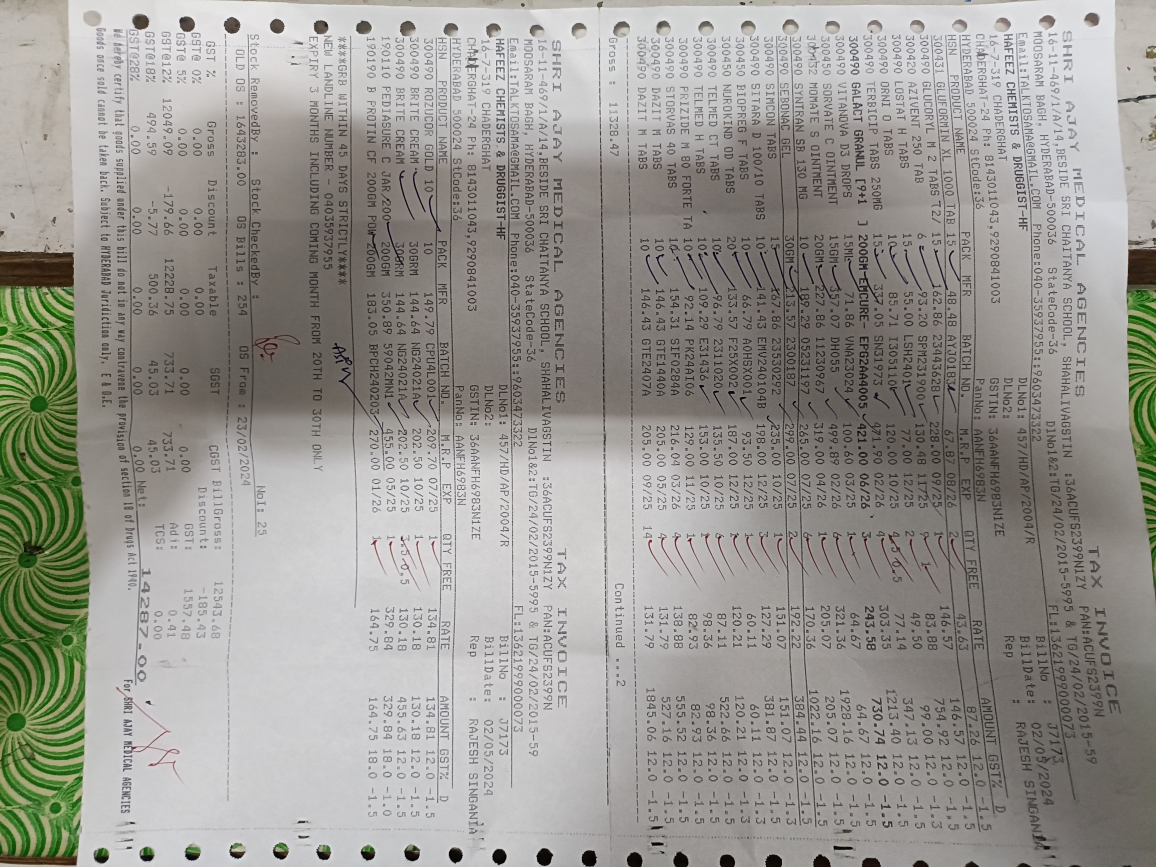 SHRI AJAY MEDICAL AGENCIES TAX INVOICE
16-11-469/1/A/14,BESIDE SRI CHAITANYA SCHOOL, SHAHALIVAGSTIN :36ACUFS2399N1ZY PAN:ACUFS2399N
MOOSARAM BAGH, HYDERABAD-500036 StateCode-36 DlNo1&2:TG/24/02/2015-5995 & TG/24/02/2015-59
Email:TALKTOSAMA@GMAIL.COM Phone:040-35937955::9603473322 FL:13621999000073
HAFEEZ CHEMISTS & DRUGGIST-HF DLNo1: 457/HD/AP/2004/R BillNo : J7173
16-7-319 CHADERGHAT DLNo2: BillDate: 02/05/2024
CHADERGHAT-24 Ph: 8143011043,9290841003 GSTIN: 36AANFH6983N1ZE Rep : RAJESH SINGANIA
HYDERABAD 500024 StCode:36 PanNo: AANFH6983N
HSN PRODUCT NAME PACK MFR BATCH NO. M.R.P EXP QTY FREE RATE AMOUNT GST% D
300490 GLUFORMIN XL 1000 TAB 15 48.48 67.87 08/26 2 43.63 87.26 12.0 -1.5
300431 GLUCORYL M 2 TABS T27 15 162.86 23443628 228.00 09/25 1 146.57 146.57 12.0 -1.5
300420 AZIVENT 250 TAB 6 93.20 SPM231900 130.48 11/25 9 1 83.88 754.92 12.0 -1.3
300490 LOSTAT H TABS 15 55.00 LSH2401 77.00 12/25 2 49.50 99.00 12.0 -1.5
300490 ORNI O TABS 10 85.71 I305110 120.00 10/25 4.5 0.5 77.14 347.13 12.0 -1.5
300490 TERBICIP TABS 250MG 15 337.05 SN31973 471.90 02/26 4 303.35 1213.40 12.0 -1.5
300490 GALACT GRANUL [9+1 ] 200GM EPCURE- EPG2AA4005 421.00 06/26 3 243.58 730.74 12.0 -1.5
300490 VITANOVA D3 DROPS 15ML 71.86 VNA23024 100.60 03/25 1 64.67 64.67 12.0 -1.5
300450 SORVATE C OINTMENT 15GM 357.07 DH055 499.89 02/25 6 321.36 1928.16 12.0 -1.5
MOMATE S OINTMENT 20GM 227.86 11230967 319.00 04/26 1 205.07 205.07 12.0 -1.5
300490 SYNTRAN SB 130 MG 10 189.29 05231197 265.00 07/25 6 170.36 1022.16 12.0 -1.5
300490 SEBONAC GEL 30GM 213.57 2300187 299.00 07/25 2 192.22 384.44 12.0 -1.3
300490 SIMCON TABS 15 167.86 23530292 235.00 10/25 1 151.07 151.07 12.0 -1.5
300490 SITARA D 100/10 TABS 10 141.43 EMV240104B 198.00 12/25 3 127.29 381.87 12.0 -1.3
300450 BIOPREG F TABS 10 66.79 AOHSX001 93.50 12/25 1 60.11 60.11 12.0 -1.5
300450 NUROKIND OD TABS 20 133.57 F25X002 187.00 12/25 1 120.21 120.21 12.0 -1.5
300490 TELMED CT TABS 10 96.79 2311020 135.50 10/25 6 87.11 522.66 12.0 -1.5
300490 TELMED H TABS 10 109.29 E31436 153.00 10/25 1 98.36 98.36 12.0 -1.5
300490 PRIZIDE M 80 FORTE TA 10 92.14 129.00 11/25 1 82.93 82.93 12.0 -1.5
300490 STORVAS 40 TABS 10 154.31 SIF0284A 216.04 03/26 4 138.88 555.52 12.0 -1.5
300490 DAZIT M TABS 10 146.43 GTE1440A 205.00 09/25 4 131.79 527.16 12.0 -1.5
300490 DAZIT M TABS 10 146.43 GTE2407A 205.00 09/25 14 131.79 1845.06 12.0 -1.5
Gross : 11328.47 Continued ...2
SHRI AJAY MEDICAL AGENCIES TAX INVOICE
16-11-469/1/A/14,BESIDE SRI CHAITANYA SCHOOL, SHAHALIVAGSTIN :36ACUFS2399N1ZY PAN:ACUFS2399N
MOOSARAM BAGH, HYDERABAD-500036 StateCode-36 DlNo1&2:TG/24/02/2015-5995 & TG/24/02/2015-59
Email:TALKTOSAMA@GMAIL.COM Phone:040-35937955::9603473322 FL:13621999000073
HAFEEZ CHEMISTS & DRUGGIST-HF DLNo1: 457/HD/AP/2004/R BillNo : J7173
16-7-319 CHADERGHAT DLNo2: BillDate: 02/05/2024
CHADERGHAT-24 Ph: 8143011043,9290841003 GSTIN: 36AANFH6983N1ZE Rep : RAJESH SINGANIA
HYDERABAD 500024 StCode:36 PanNo: AANFH6983N
HSN PRODUCT NAME PACK MFR BATCH NO. M.R.P EXP QTY FREE RATE AMOUNT GST% D
300490 ROZUCOR GOLD 10 10 149.79 CPU4L001 209.70 07/25 1 134.81 134.81 12.0 -1.5
300490 BRITE CREAM 30GRM 144.64 NG24021A 202.50 10/25 1 130.18 130.18 12.0 -1.5
300490 BRITE CREAM 30GRM 144.64 NG24021A 202.50 10/25 3.5 0.5 130.18 455.63 12.0 -1.5
190110 PEDIASURE C JAR 200GM 200GM 350.89 59042MN1 455.00 05/25 1 329.84 329.84 18.0 -1.0
190190 B PROTIN CF 200GM POW 200GM 183.05 BPCH240203 270.00 01/26 1 164.75 164.75 18.0 -1.5
****GRB WITHIN 45 DAYS STRICTLY****
NEW LANDLINE NUMBER - 04035937955
EXPIRY 3 MONTHS INCLUDING COMING MONTH FROM 20TH TO 30TH ONLY
Stock RemovedBy : Stock CheckedBy : NoI: 25
OLD OS : 1643283.00 OS Bills : 254 OS From : 23/02/2024
GST % Gross Discount Taxable SGST CGST BillGross: 12543.68
GST@ 0% 0.00 0.00 0.00 Discount: -185.43
GST@ 5% 0.00 0.00 0.00 0.00 0.00 GST: 1557.48
GST@12% 12049.09 -179.66 12228.75 733.71 733.71 Adj: 0.41
GST@18% 494.59 -5.77 500.36 45.03 45.03 TCS: 0.00
GST@28% 0.00 0.00 0.00 0.00 0.00 Net: 14287.00
We hereby certify that goods supplied under this bill do not in any way contravene the provision of section 18 of Drugs Act 1940.
Goods once sold cannot be taken back. Subject to HYDERABAD Juridiction only. E & O.E. For SHRI AJAY MEDICAL AGENCIES